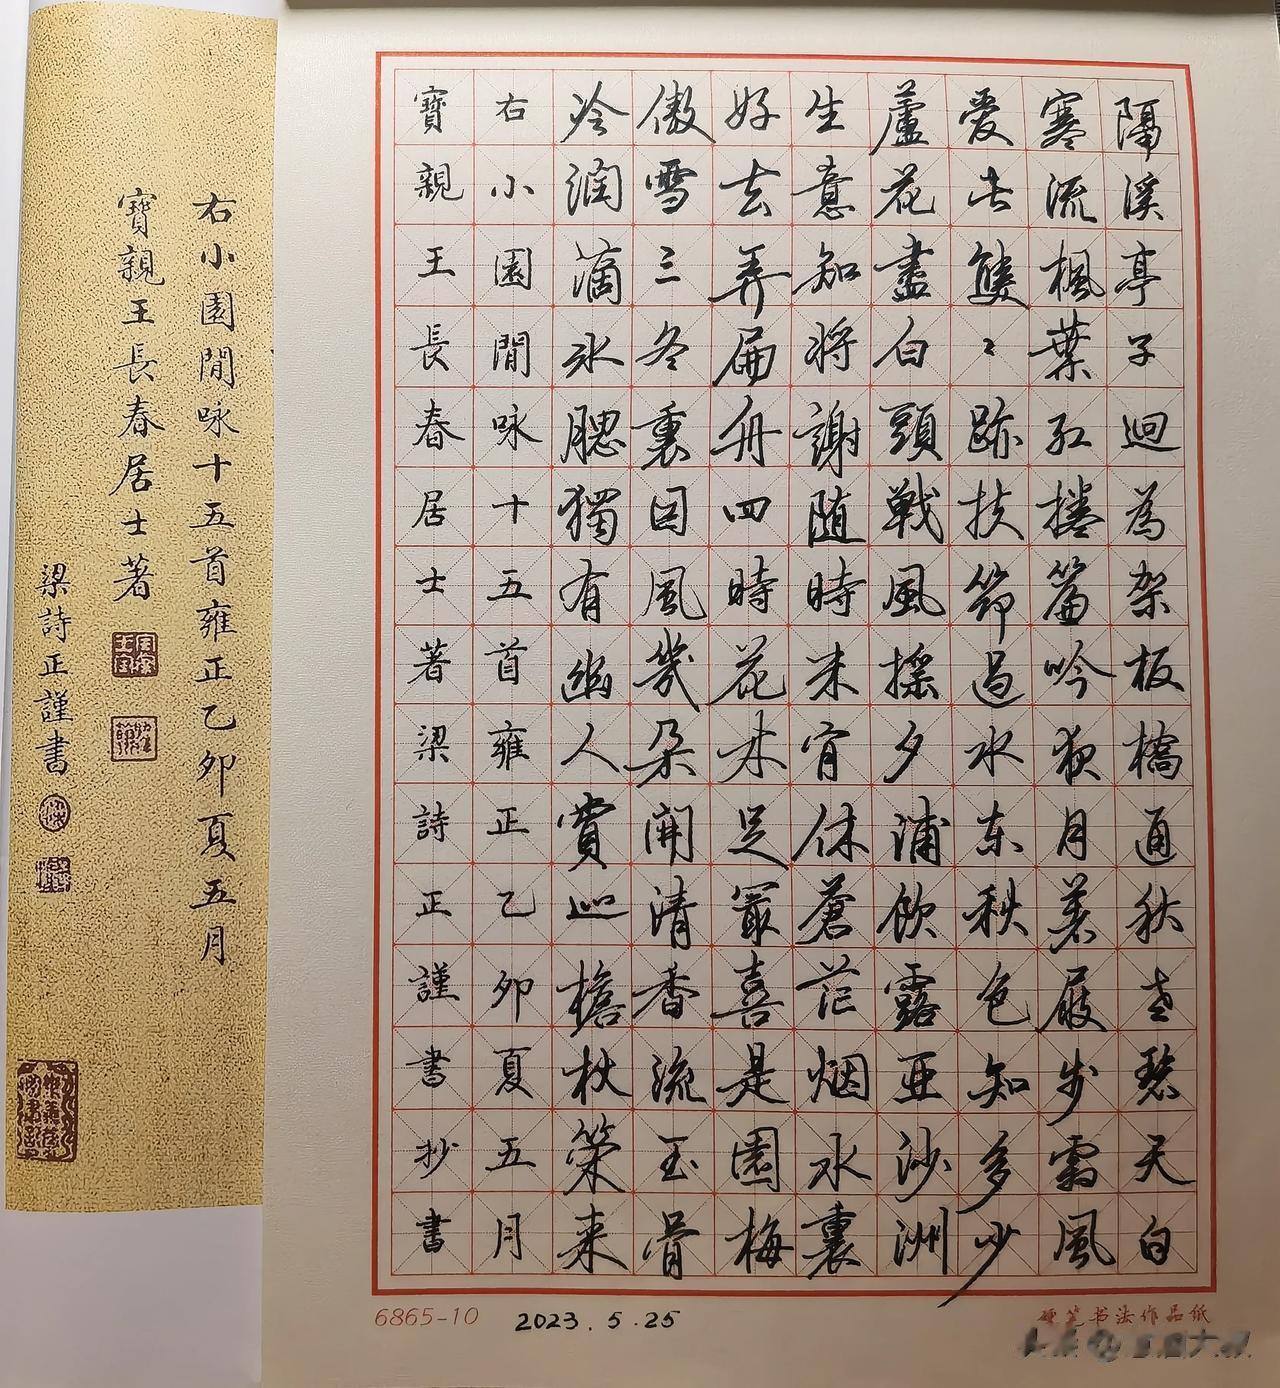 隔溪亭子迴為架板橋通秋老碧天白
寒流楓葉紅捲簾吟夜月着屐步霜風
爱此雙〻跡扶筇過水东秋色知多少
蘆花盡白頭戰風摇夕浦飲露亚沙洲
生意知将謝随時未肯休蒼茫烟水裏
好去弄扁舟四時花木足最喜是園梅
傲雪三冬裏因風幾朵開清香流玉骨
冷潤滴冰腮獨有幽人賞巡檐杖策来
右小園閒咏十五首雍正乙卯夏五月
寶親王長春居士著梁詩正謹書抄書
6865-10
2023.5.25
硬笔书法作品纸
右小園閒咏十五首雍正乙卯夏五月
寶親王長春居士著
梁詩正謹書